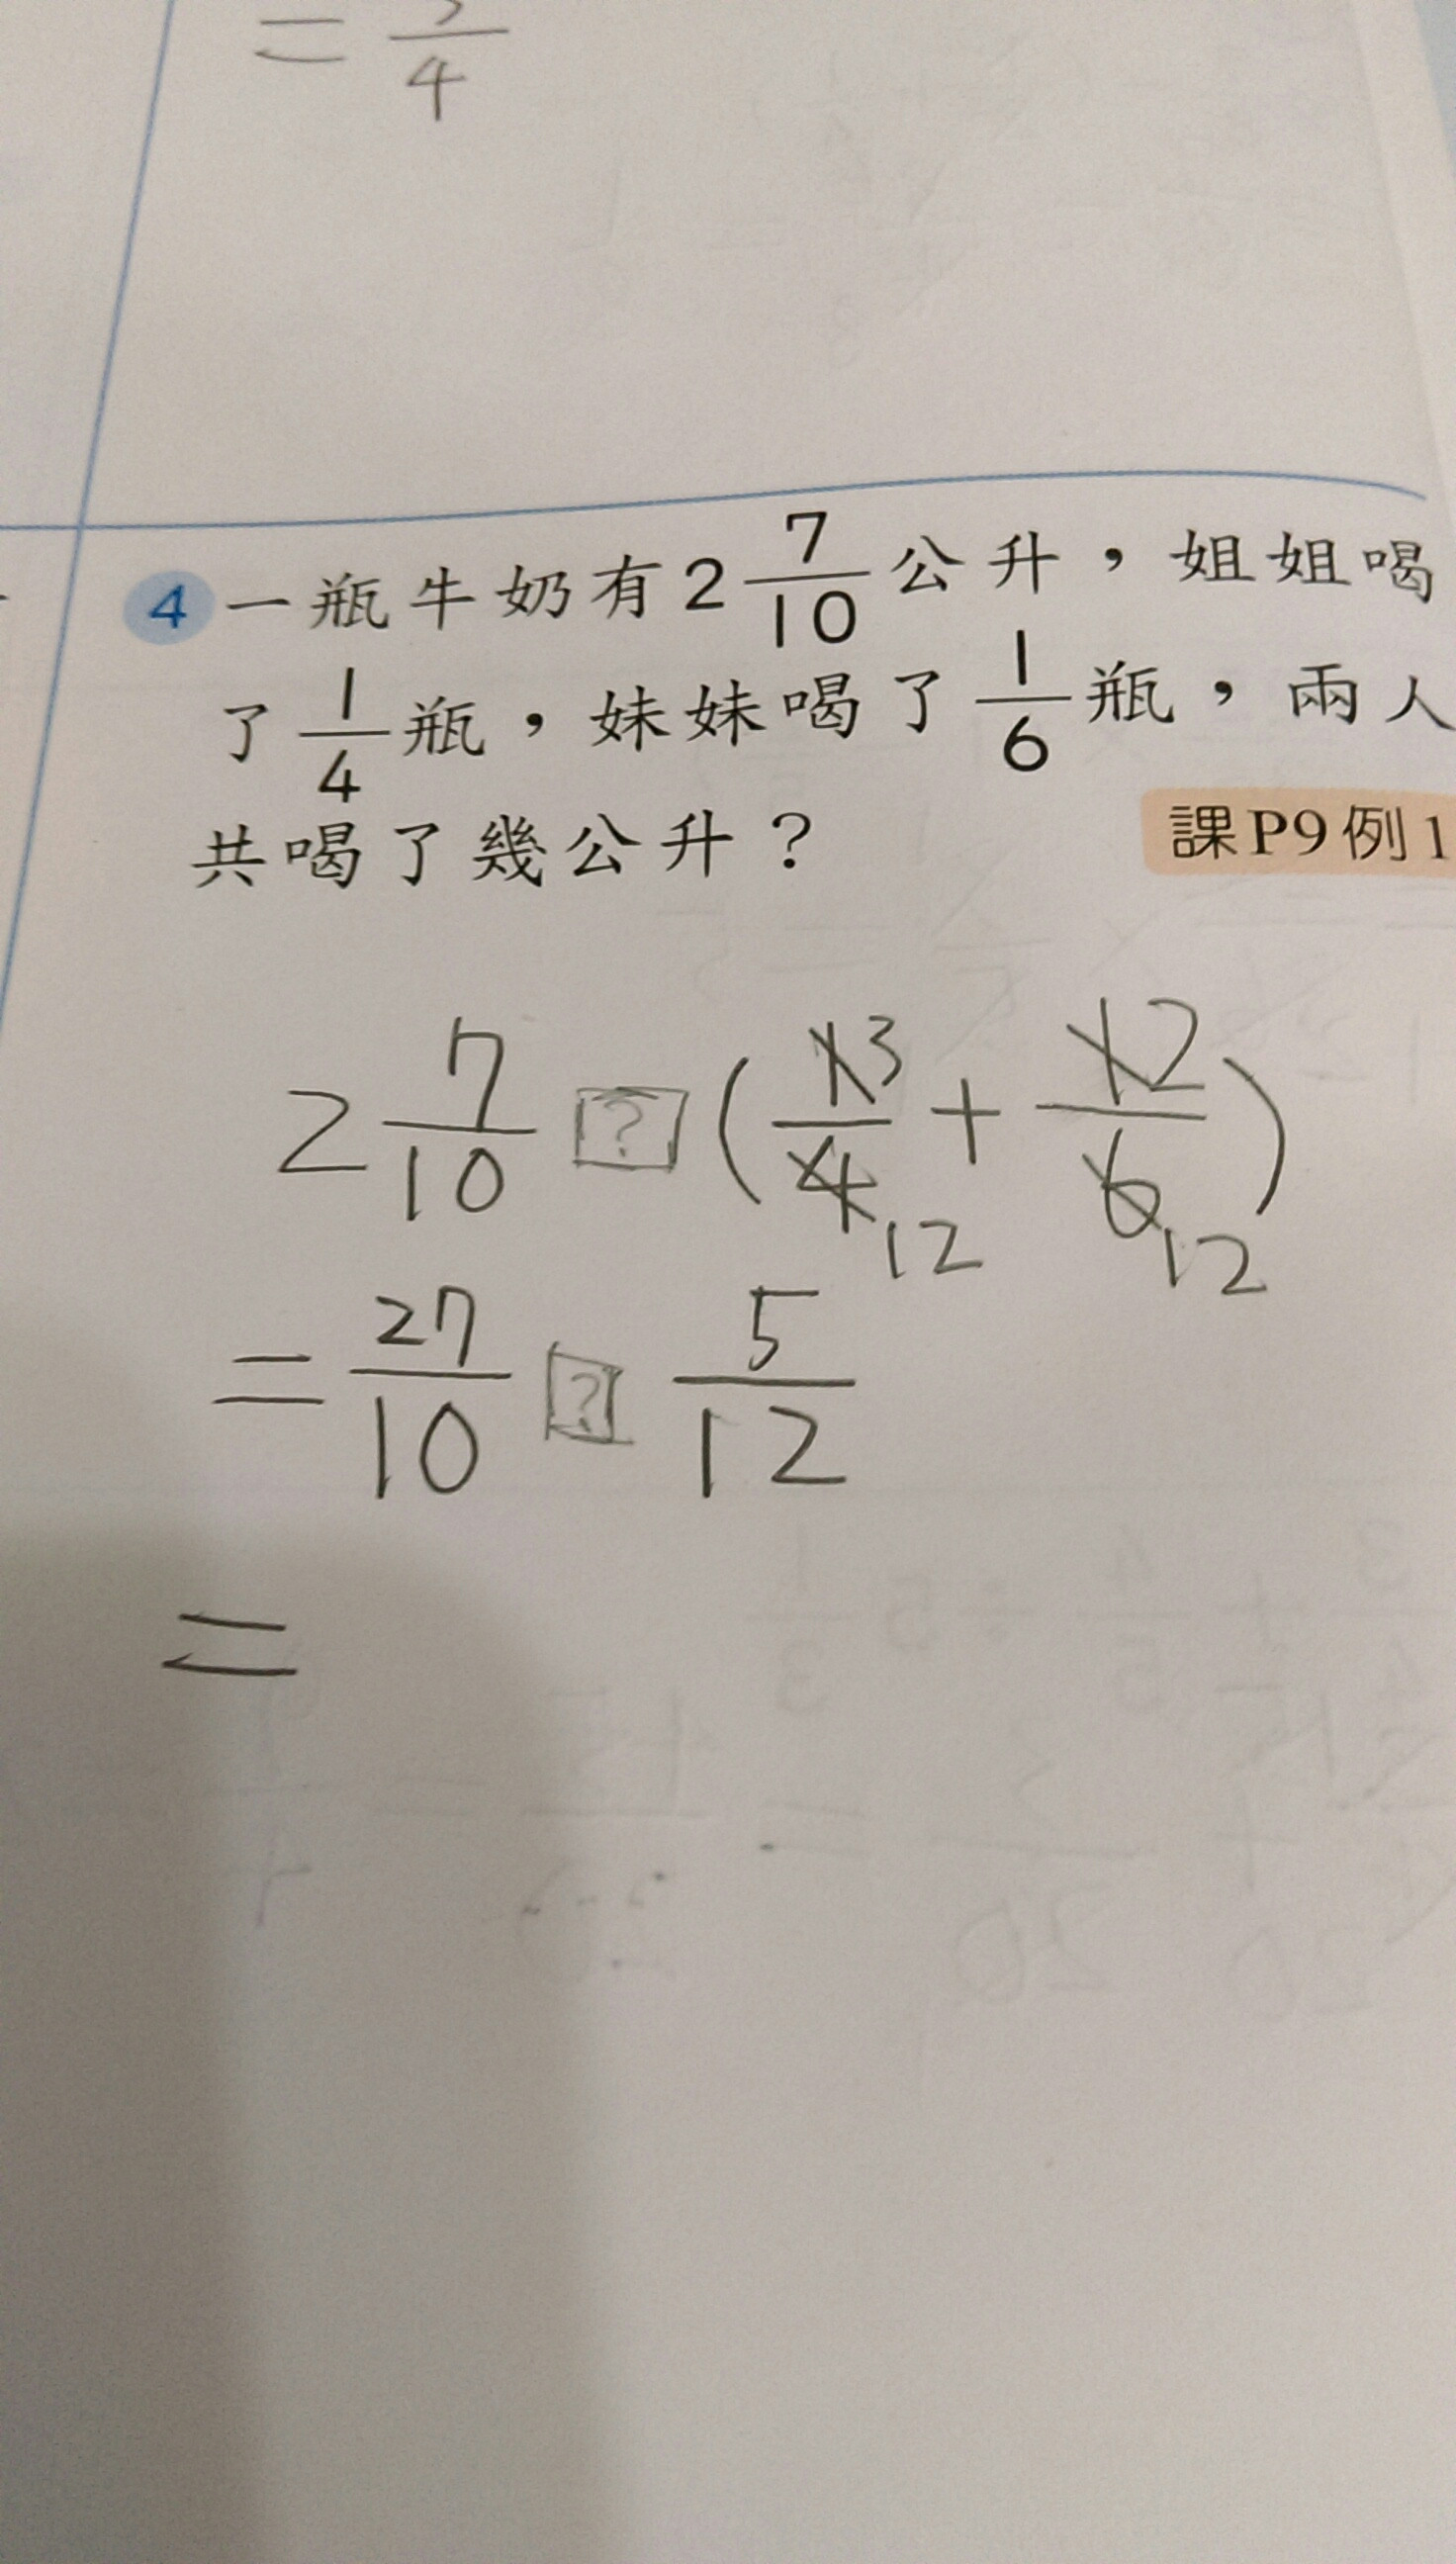 = /4
4 一瓶牛奶有2 7/10 公升，姐姐喝
了 1/4 瓶，妹妹喝了 1/6 瓶，兩人
共喝了幾公升？
課P9例1
2 7/10 ? (1 3/4 12 + 1 2/6 12)
= 27/10 ? 5/12
=